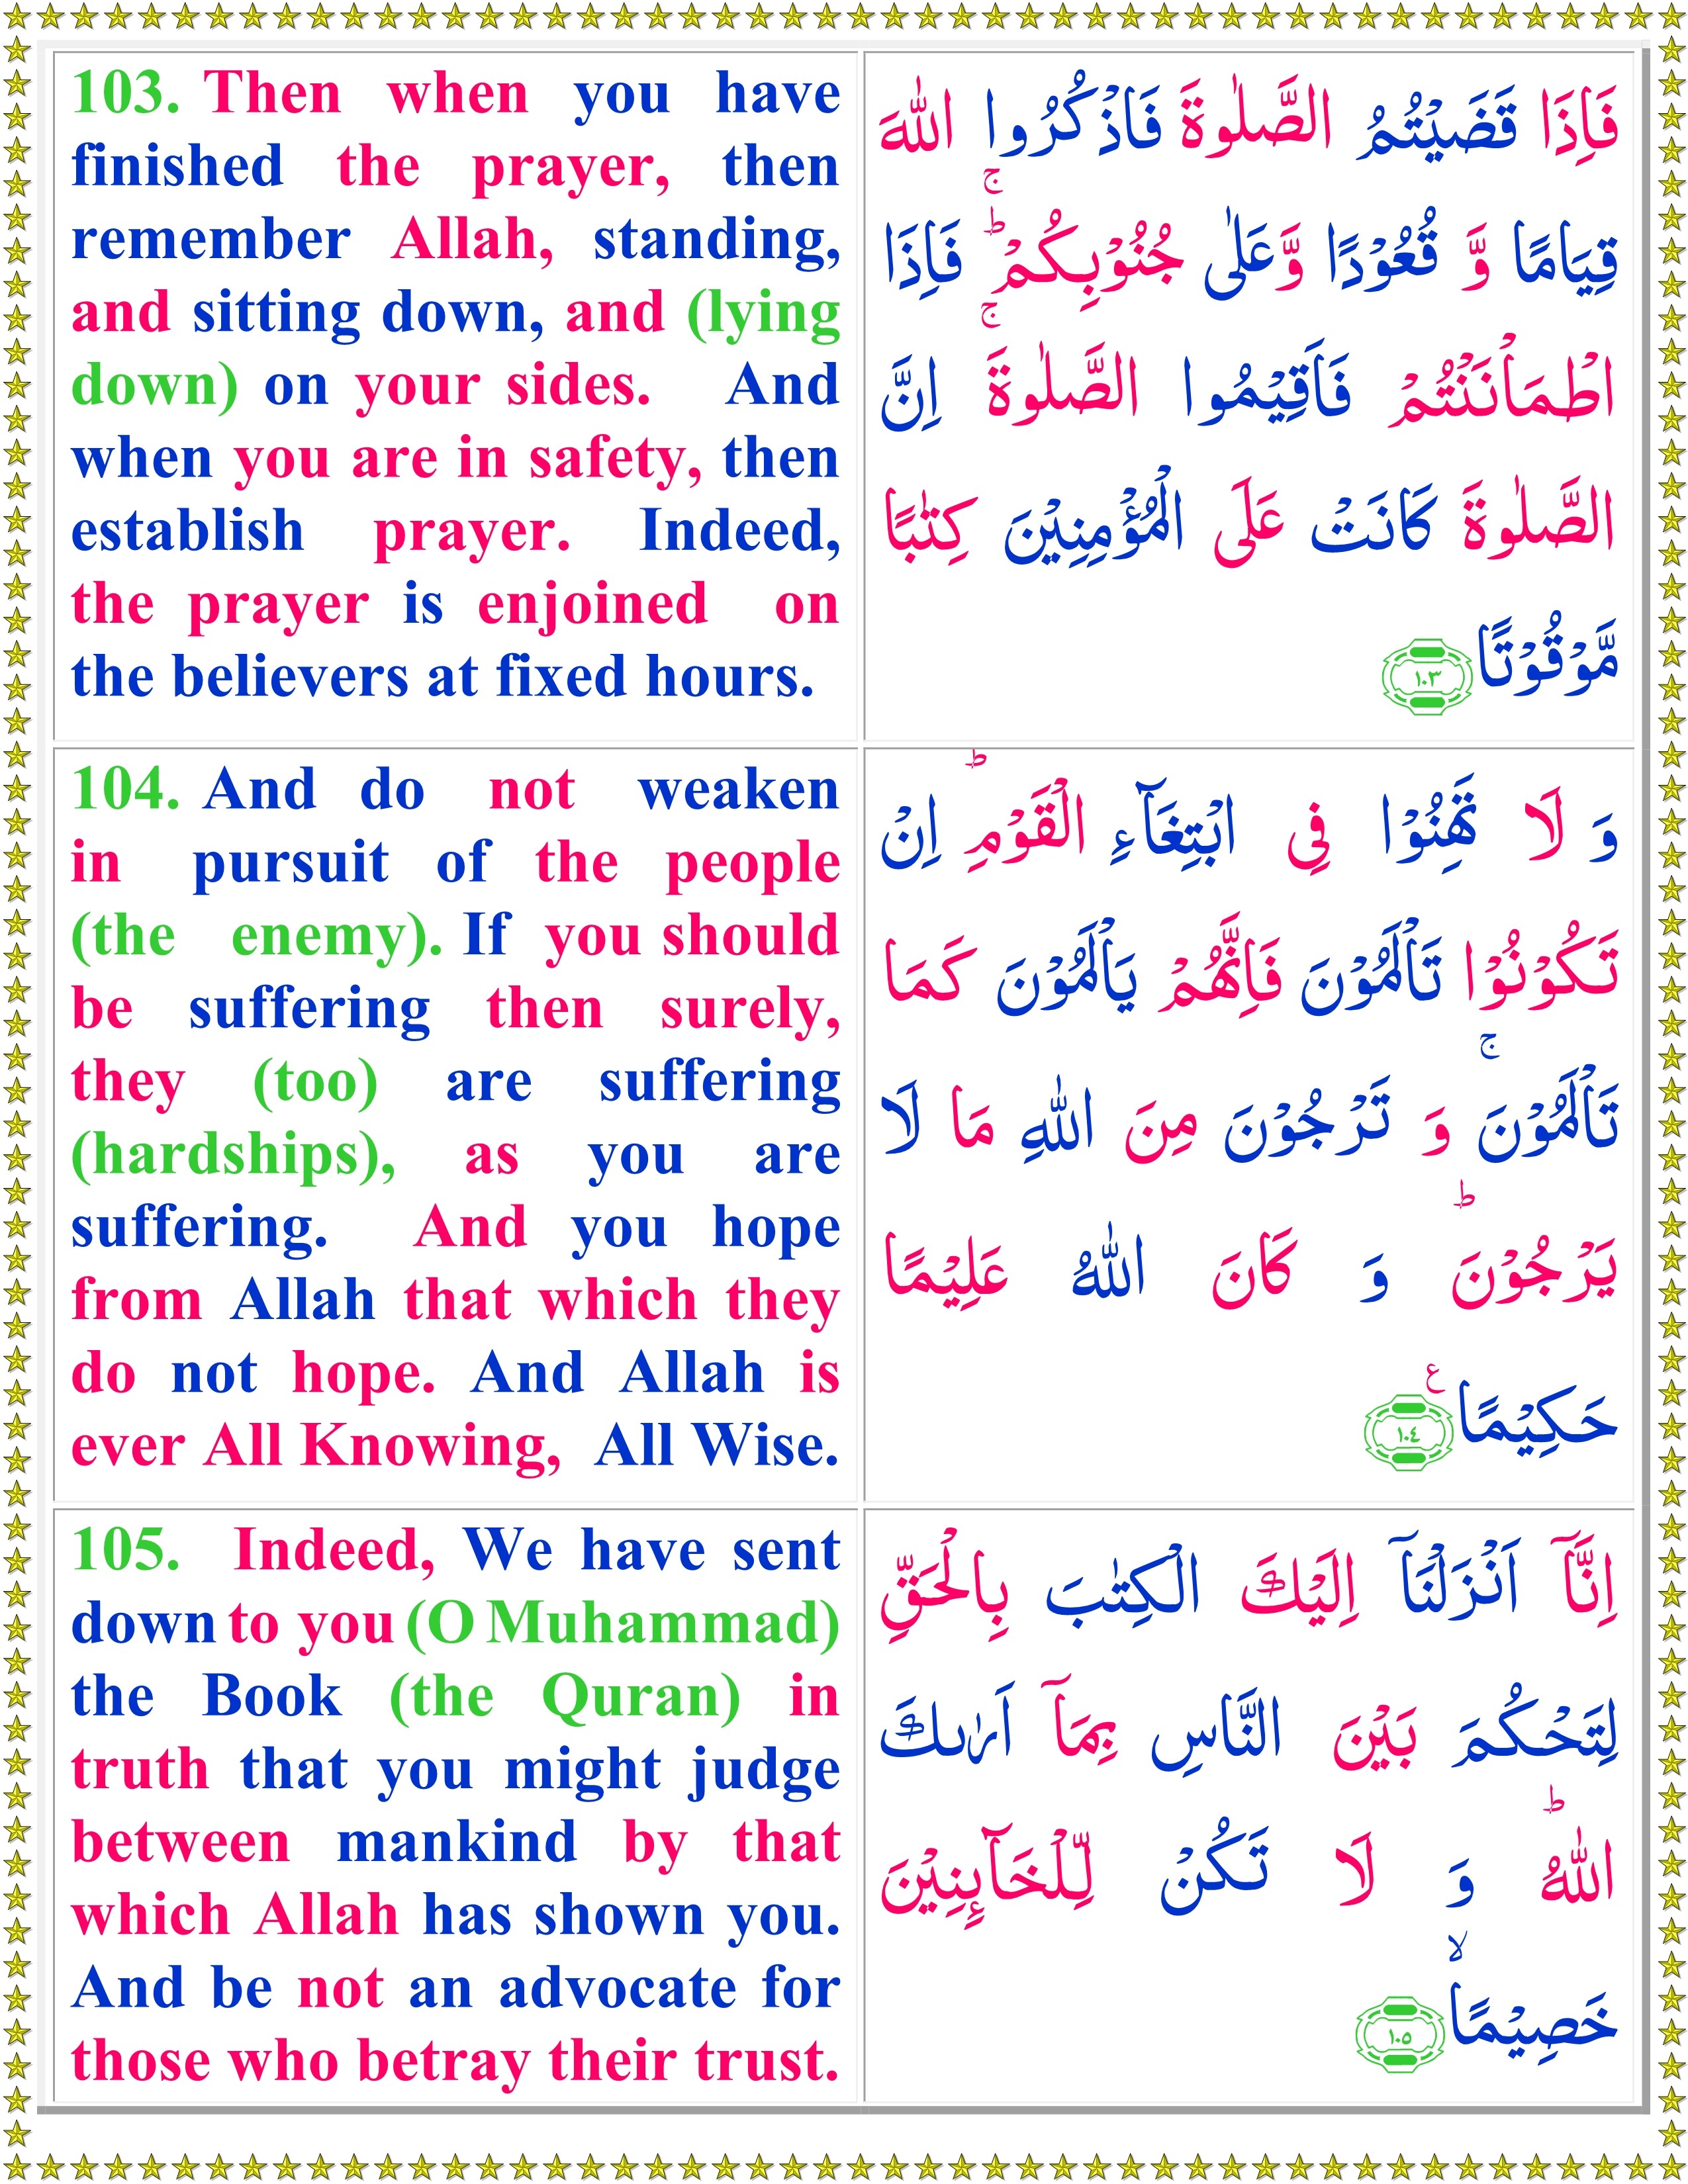 103. Then when you have
finished the prayer, then
remember Allah, standing,
and sitting down, and (lying
down) on your sides. And
when you are in safety, then
establish prayer. Indeed,
the prayer is enjoined on
the believers at fixed hours.
فَاِذَا قَضَيْتُمُ الصَّلٰوةَ فَاذْكُرُوا اللّٰهَ
قِيَامًا وَّ قُعُوْدًا وَّعَلٰى جُنُوْبِكُمْ ۚؕ فَاِذَا
اطْمَاْنَنْتُمْ فَاَقِيْمُوا الصَّلٰوةَ ۚ اِنَّ
الصَّلٰوةَ كَانَتْ عَلَى الْمُؤْمِنِيْنَ كِتٰبًا
مَّوْقُوْتًا ١٠٣
104. And do not weaken
in pursuit of the people
(the enemy). If you should
be suffering then surely,
they (too) are suffering
(hardships), as you are
suffering. And you hope
from Allah that which they
do not hope. And Allah is
ever All Knowing, All Wise.
وَ لَا تَهِنُوْا فِى ابْتِغَآءِ الْقَوْمِ ؕ اِنْ
تَكُوْنُوْا تَاْلَمُوْنَ فَاِنَّهُمْ يَاْلَمُوْنَ كَمَا
تَاْلَمُوْنَ ۚ وَ تَرْجُوْنَ مِنَ اللّٰهِ مَا لَا
يَرْجُوْنَ ؕ وَ كَانَ اللّٰهُ عَلِيْمًا
حَكِيْمًا ١٠٤ ع
105. Indeed, We have sent
down to you (O Muhammad)
the Book (the Quran) in
truth that you might judge
between mankind by that
which Allah has shown you.
And be not an advocate for
those who betray their trust.
اِنَّاۤ اَنْزَلْنَاۤ اِلَيْكَ الْكِتٰبَ بِالْحَقِّ
لِتَحْكُمَ بَيْنَ النَّاسِ بِمَاۤ اَرٰٮكَ
اللّٰهُ ؕ وَ لَا تَكُنْ لِّلْخَآٮِٕنِيْنَ
خَصِيْمًا ۙ ١٠٥